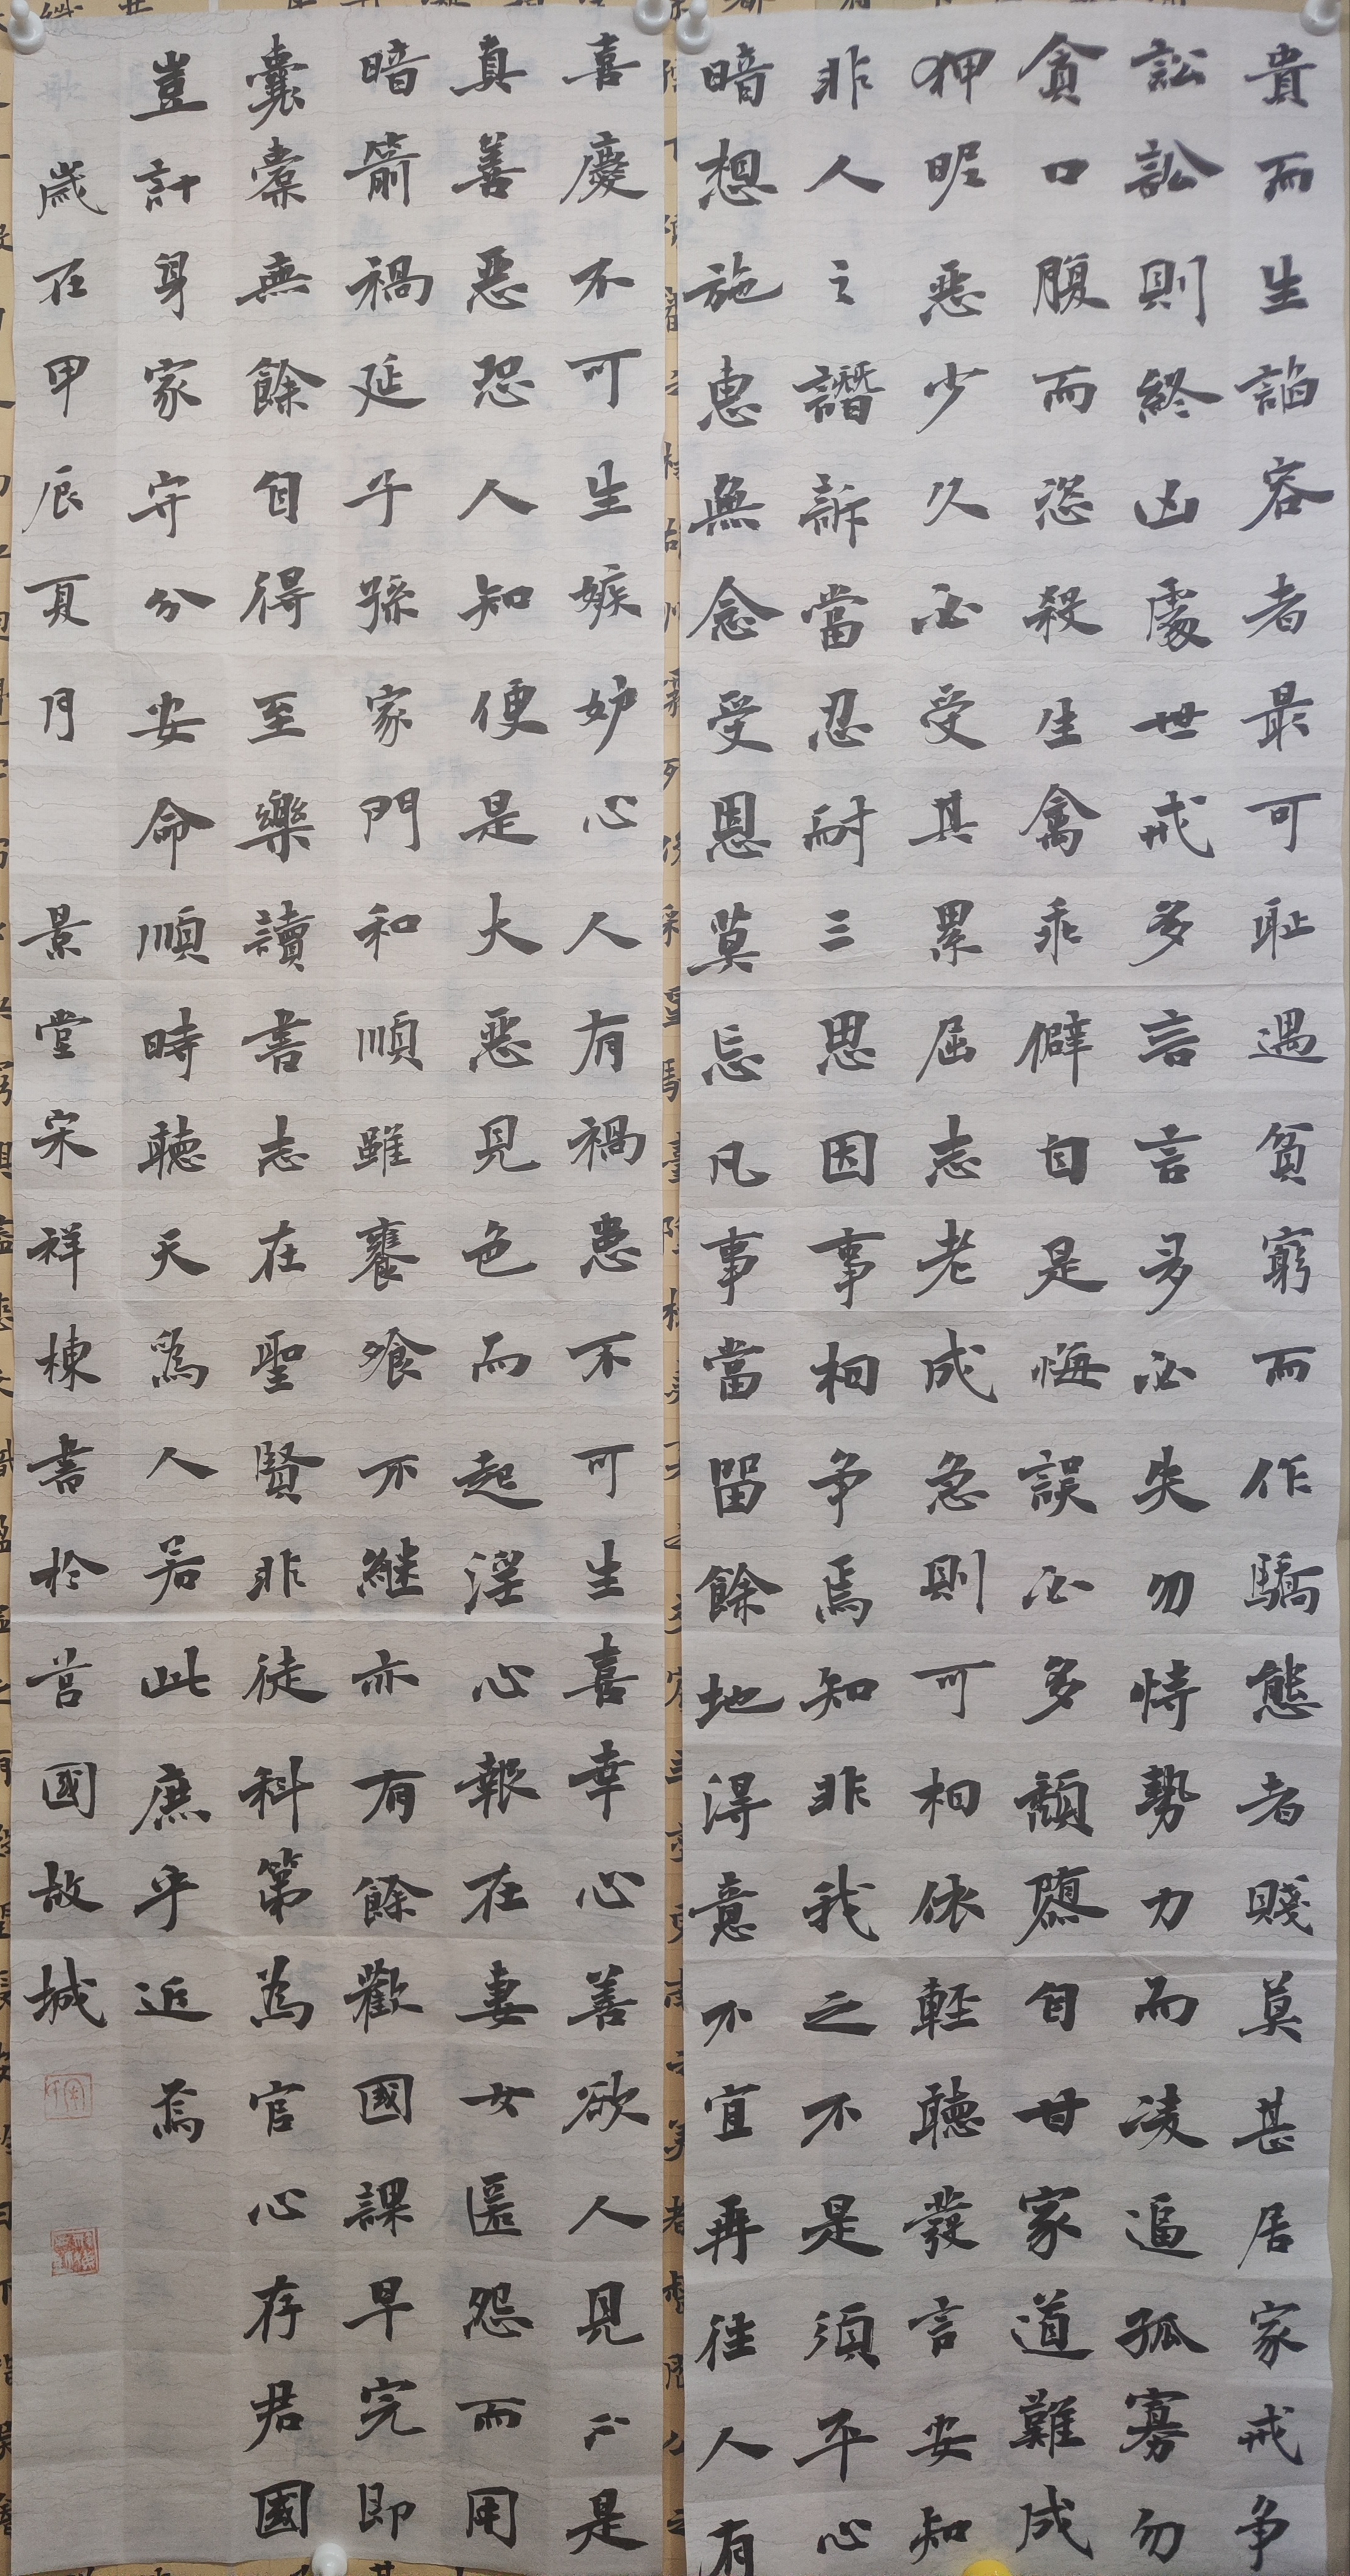 貴而生諂容者最可耻遇貧窮而作驕態者賤莫甚居家戒争
訟訟則終凶處世戒多言言多必失勿恃勢力而凌逼孤寡勿
貪口腹而恣殺生禽乖僻自是悔誤必多頹隳自甘家道難成
狎昵惡少久必受其累屈志老成急則可相依輕聽發言安知
非人之譖訴當忍耐三思因事相争焉知非我之不是須平心
暗想施惠無念受恩莫忘凡事當留餘地得意不宜再往人有
喜慶不可生嫉妒心人有禍患不可生喜幸心善欲人見不是
真善惡恐人知便是大惡見色而起淫心報在妻女匿怨而用
暗箭禍延子孫家門和順雖饔飧不繼亦有餘歡國課早完即
囊橐無餘自得至樂讀書志在聖賢非徒科第為官心存君國
豈計身家守分安命順時聽天為人若此庶乎近焉
歲在甲辰夏月 景堂宋祥棟書於莒國故城